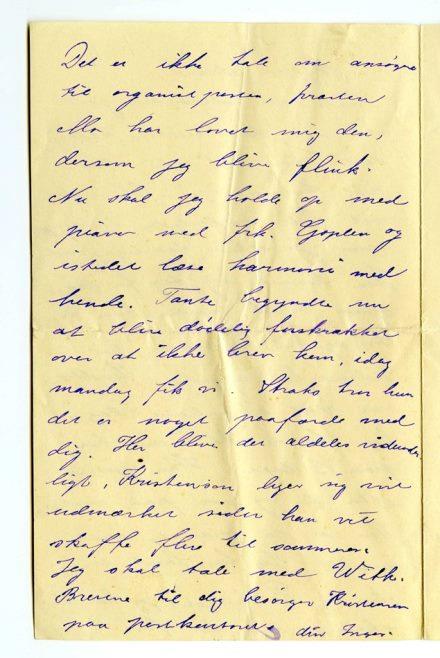 Det er ikke tale om ansøgre
til organistposten, præsten
Mo har lovet mig den,
dersom jeg blive flink.
Nu skal jeg holde op med
piano med frk. Goplen og
istedet læse harmoni med
hende. Tante begyndte nu
at blive dødelig forskrækket
over at ikke brev kom, idag
mandag fik vi. Straks tror hun
det er noget paafærde med
dig. Her blive det aldeles vidunder
ligt, Kristensen siger sig vist
udmærket siden han vil
skaffe flere til sommeren
Jeg skal tale med With.
Brevene til dig besørger Kristensen
paa postkontoret. din Inger.